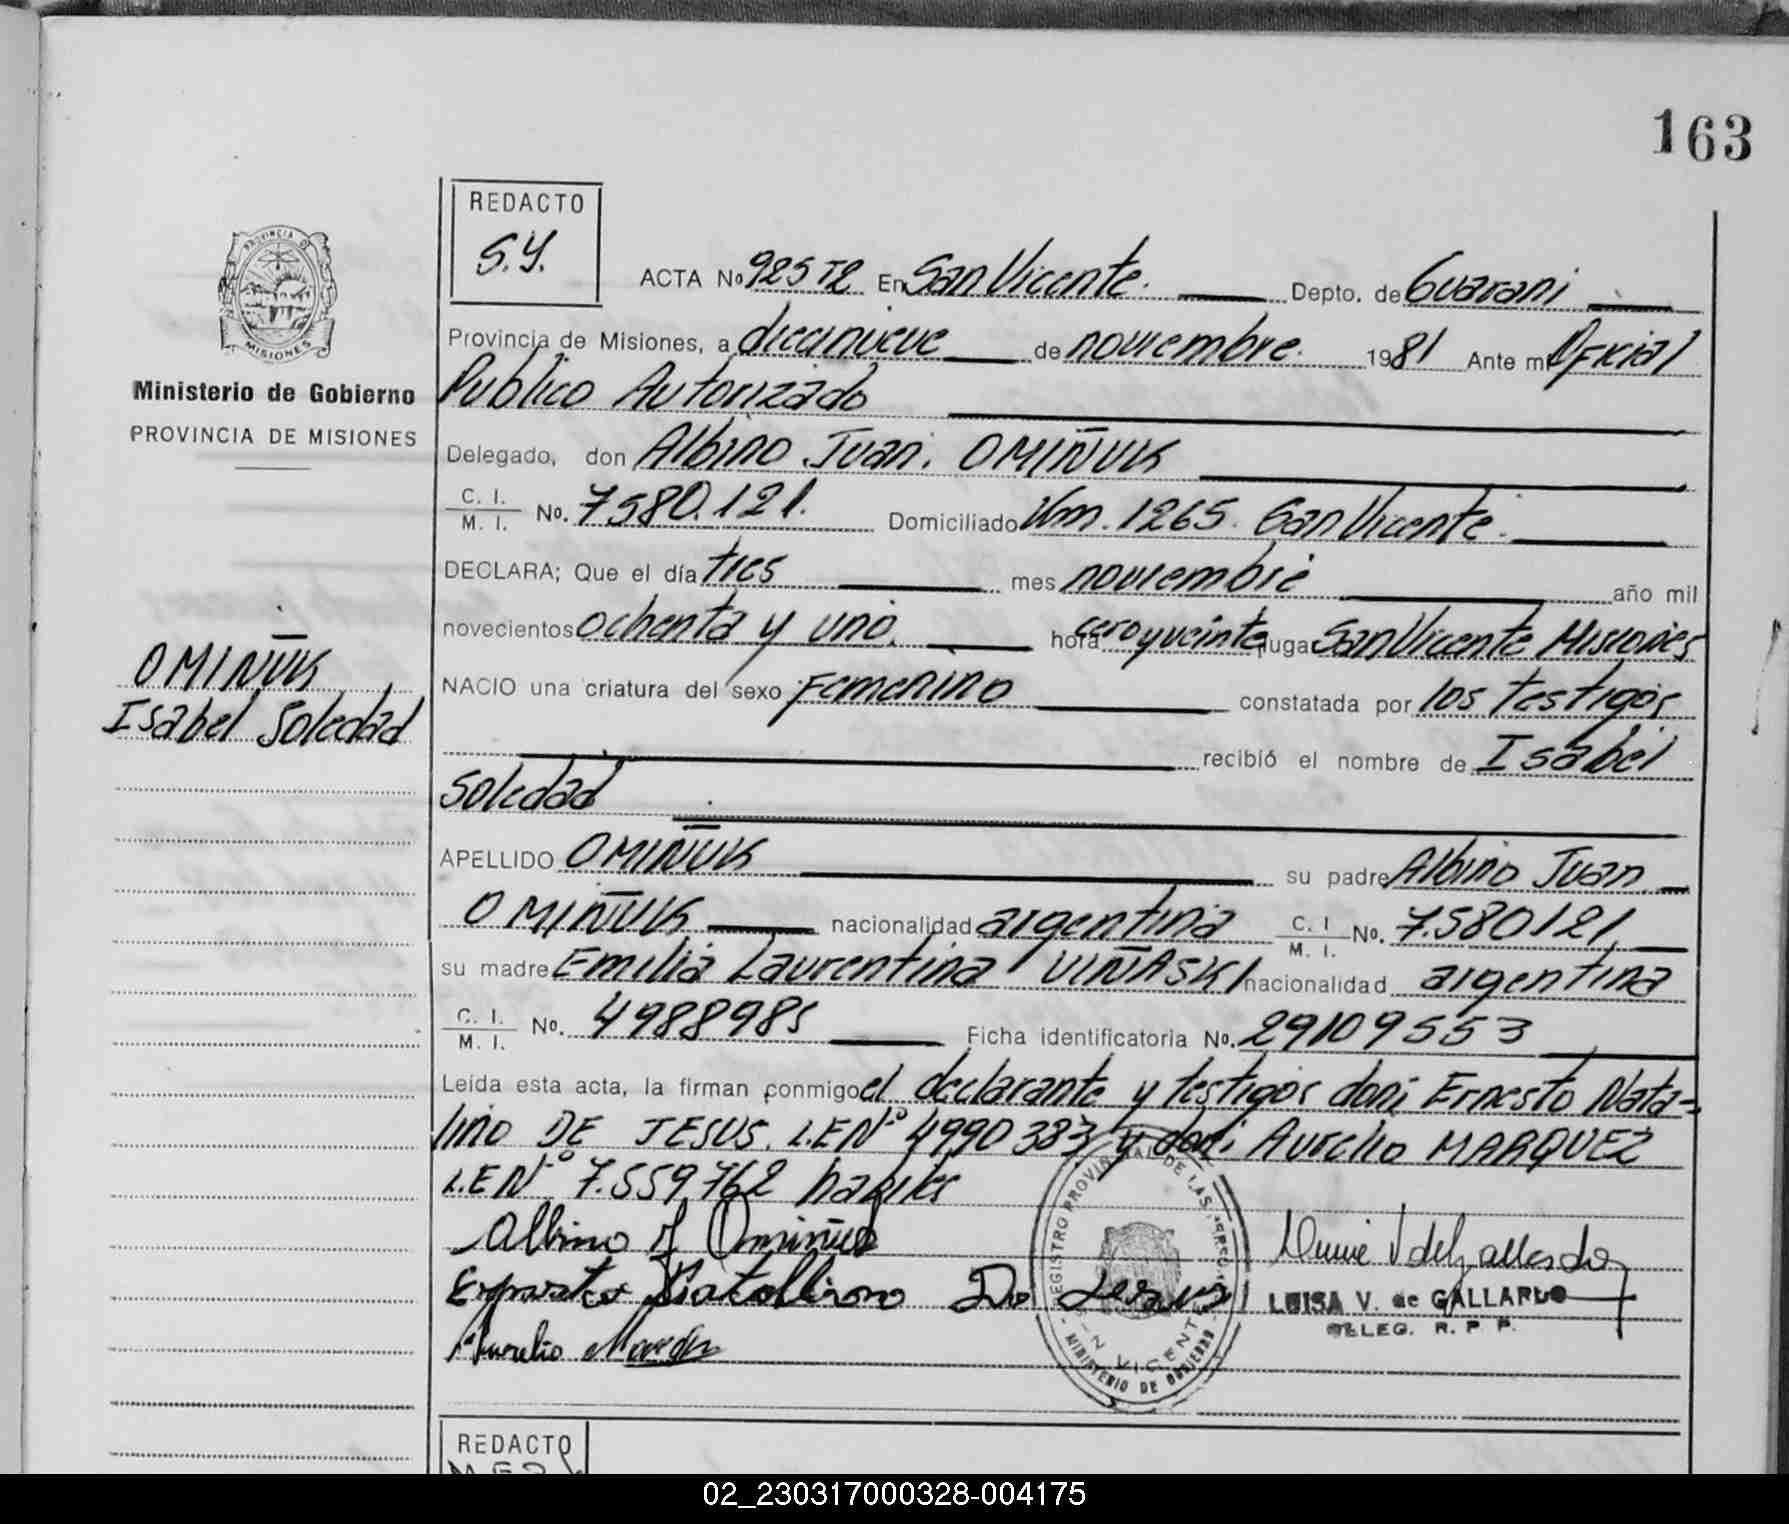 163
REDACTO
S.Y.
ACTA No 925 T2 En San Vicente. Depto. de Guarani
Provincia de Misiones, a diecinueve de noviembre. 1981 Ante mi Oficial
Publico Autorizado
Delegado, don Albino Juan. OMIÑUK
C. I.
M. I. No. 7580.121. Domiciliado Km. 1265. San Vicente.
DECLARA; Que el día tres mes noviembre año mil
novecientos ochenta y uno. hora cero y veinte lugar San Vicente Misiones
NACIO una criatura del sexo Femenino constatada por los testigos
recibió el nombre de Isabel
Soledad
APELLIDO OMIÑUK su padre Albino Juan
OMIÑUK nacionalidad argentina C. I. M. I. No. 7.580121,
su madre Emilia Laurentina VIÑASKI nacionalidad argentina
C. I.
M. I. No. 4988985 Ficha identificatoria No. 29109553
Leída esta acta, la firman conmigo el declarante y testigos don; Ernesto Nata-
lino DE JESUS. L.E Nº 4990383 y don; Aurelio MARQUEZ
L.E Nº 7.559.762 habiles
Albino J Omiñuk
De Jesus
Aurelio
LUISA V. de GALLARDO
DELEG. R. P. P.
REGISTRO PROVINCIAL DE LAS PERSONAS
SAN VICENTE
MINISTERIO DE GOBIERNO
PROVINCIA DE
MISIONES
Ministerio de Gobierno
PROVINCIA DE MISIONES
OMIÑUK
Isabel Soledad
REDACTO
02_230317000328-004175